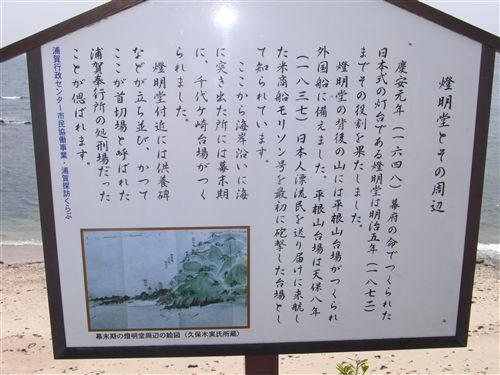 燈明堂とその周辺
慶安元年（一六四八）幕府の命でつくられた
日本式の灯台である燈明堂は明治五年（一八七二）
までその役割を果たしました。
燈明堂の背後の山には平根山台場がつくられ
外国船に備えました。平根山台場は天保八年
（一八三七）日本人漂流民を送り届けに来航し
た米商船モリソン号を最初に砲撃した台場とし
て知られています。
ここから海岸沿いに海
に突き出た所には幕末期
に、千代ヶ崎台場がつく
られました。
燈明堂付近には供養碑
などが立ち並び、かつて
ここが首切場と呼ばれた
浦賀奉行所の処刑場だった
ことが偲ばれます。
浦賀行政センター市民協働事業・浦賀探訪くらぶ
幕末期の燈明堂周辺の絵図（久保木実氏所蔵）